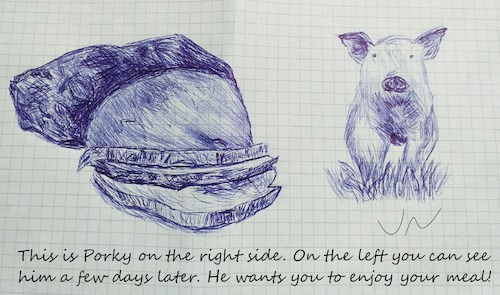 This is Porky on the right side. On the left you can see
him a few days later. He wants you to enjoy your meal!